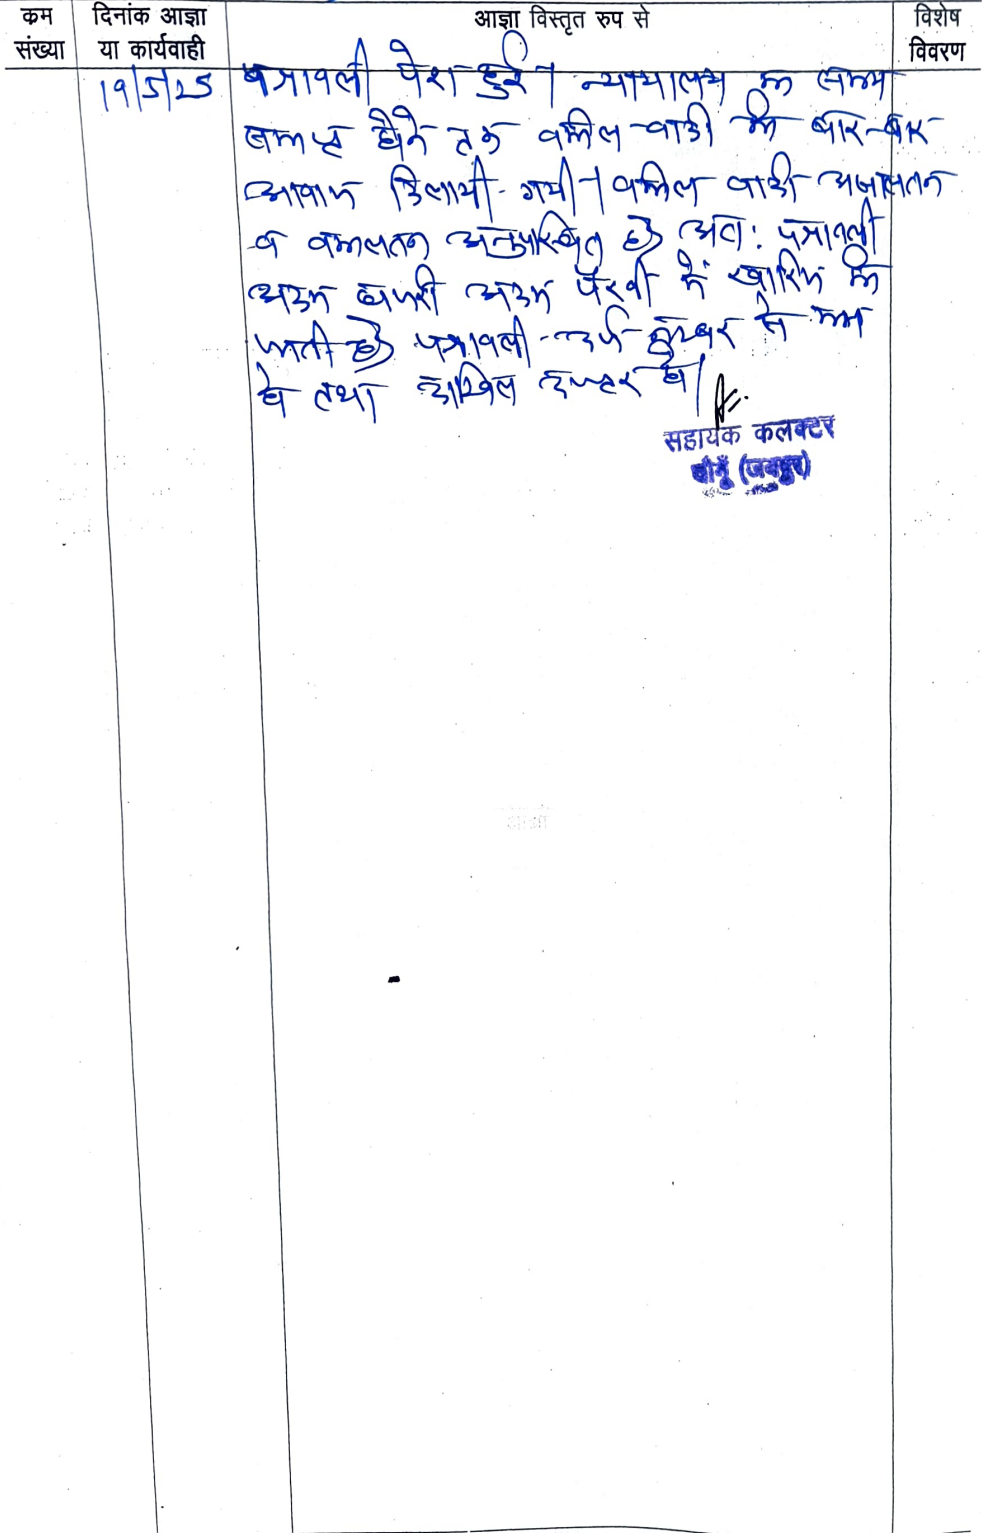 क्रम संख्या
दिनांक आज्ञा या कार्यवाही
आज्ञा विस्तृत रुप से
विशेष विवरण
19/5/25
पत्रावली पेश हुई। न्यायालय का समय
समाप्त होने तक वकील वादी को बार-बार
आवाज दिलायी गयी। वकील वादी असालतन
व वकालतन अनुपस्थित है अतः पत्रावली
अदम हाजरी अदम पैरवी में खारिज की
जाती है पत्रावली दर्ज नम्बर से कम
हो तथा दाखिल दफ्तर हो।
सहायक कलक्टर
चौमूँ (जयपुर)